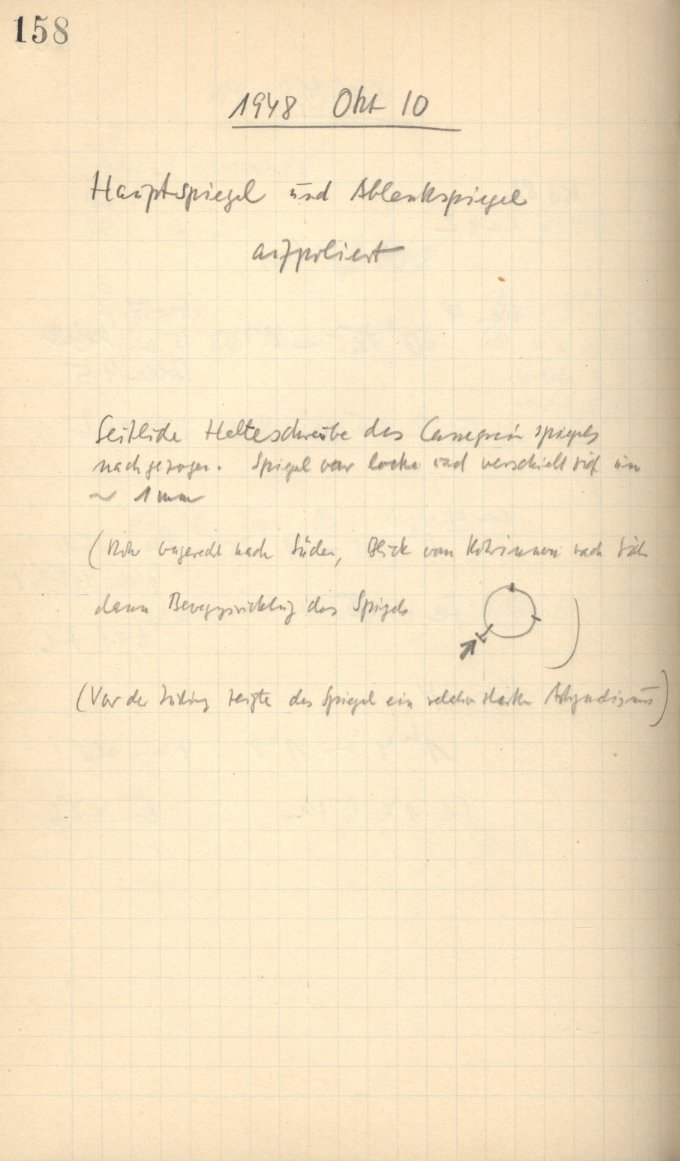 158
1948 Okt 10
Hauptspiegel und Ablenkspiegel
aufpoliert
Seitliche Halteschraube des Cassegrain spiegels
nachgezogen. Spiegel war locker und verschiebt sich um
~ 1 mm
(Rohr wagerecht nach Süden, Blick vom nach
dann Bewegungsrichtung des Spiegels )
(Vor der zeigte der Spiegel ein starken Astigmatismus)